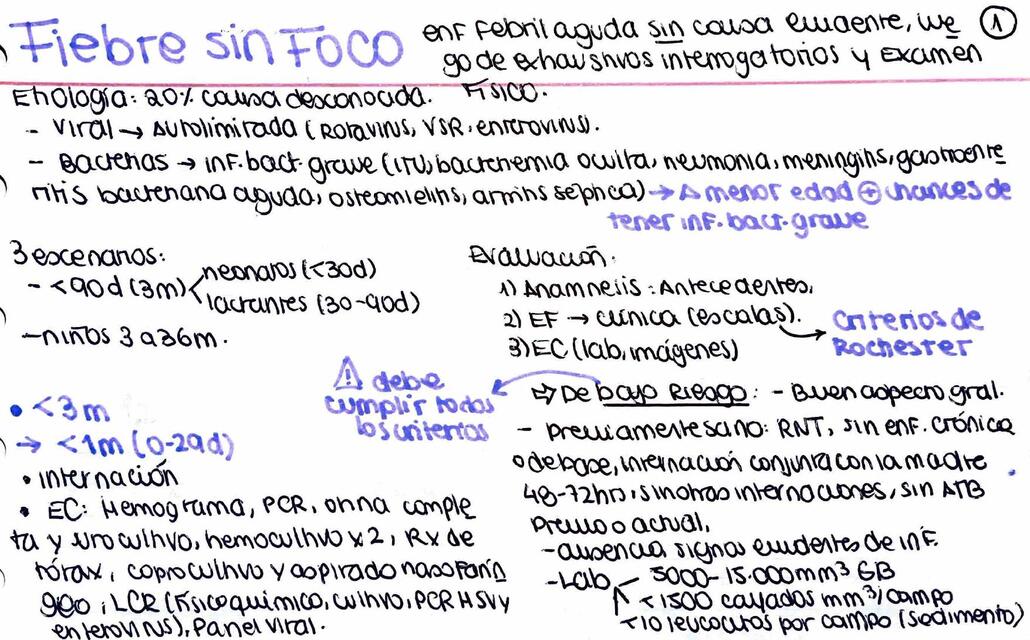 Fiebre sin Foco
enf febril aguda sin causa evidente, lue
go de exhaustivos interrogatorios y Examen
Físico.
1
Etiología: 20% causa desconocida.
- Viral → Autolimitada (Rotavirus, VSR, enterovirus).
- Bacterias → inf. bact. grave (ITU, bacteriemia oculta, neumonia, meningitis, gastroente
ritis bacteriana aguda, osteomielitis, artritis séptica) → A menor edad ⊕ chances de
tener inf. bact. grave
3 escenarios:
- <90d (3m) < neonatos (<30d)
lactantes (30-90d)
- niños 3 a 36m.
Evaluación:
1) Anamnesis: Antecedentes,
2) EF → clínica (escalas). → Criterios de
Rochester
3) EC (lab, imágenes)
⚠ debe
cumplir todos
los criterios
⇨ De bajo Riesgo: - Buen aspecto gral.
- previamente sano: RNT, sin enf. crónica
o de base, internación conjunta con la madre
48-72hrs, sin otras internaciones, sin ATB
Previo o actual,
- ausencia signos evidentes de inf.
- Lab 5000-15.000mm³ GB
<1500 cayados mm³/campo
<10 leucocitos por campo (sedimento)
• <3m
→ <1m (0-29d)
• internación
• EC: Hemograma, PCR, orina comple
ta y urocultivo, hemocultivo x2, Rx de
tórax, coprocultivo y aspirado nasofarín
geo, LCR (físicoquímico, cultivo, PCR HSV y
enterovirus), Panel viral.